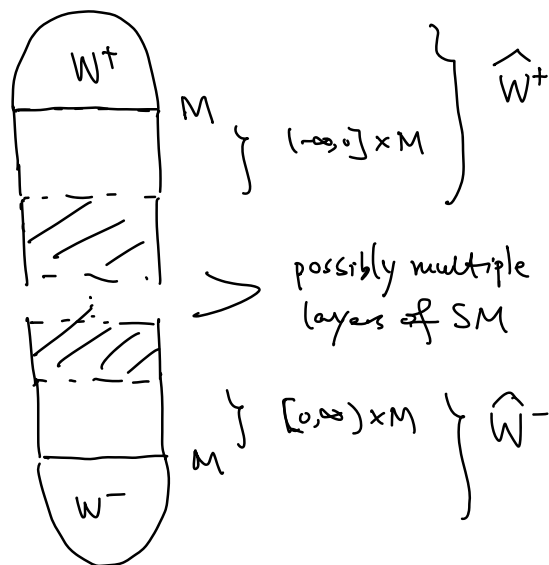 W⁺
M
(-∞,0] × M
Ŵ⁺
possibly multiple
layers of SM
[0,∞) × M
Ŵ⁻
M
W⁻